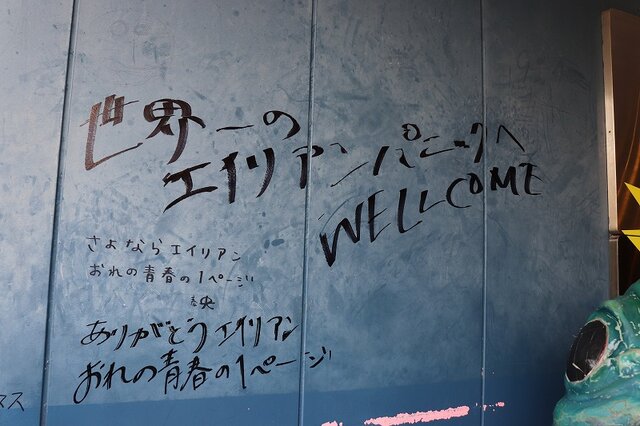 世界一の
エイリアンパニックへ
WELLCOME
さよならエイリアン
おれの青春の1ページ
映
ありがとうエイリアン
おれの青春の1ページ
マス